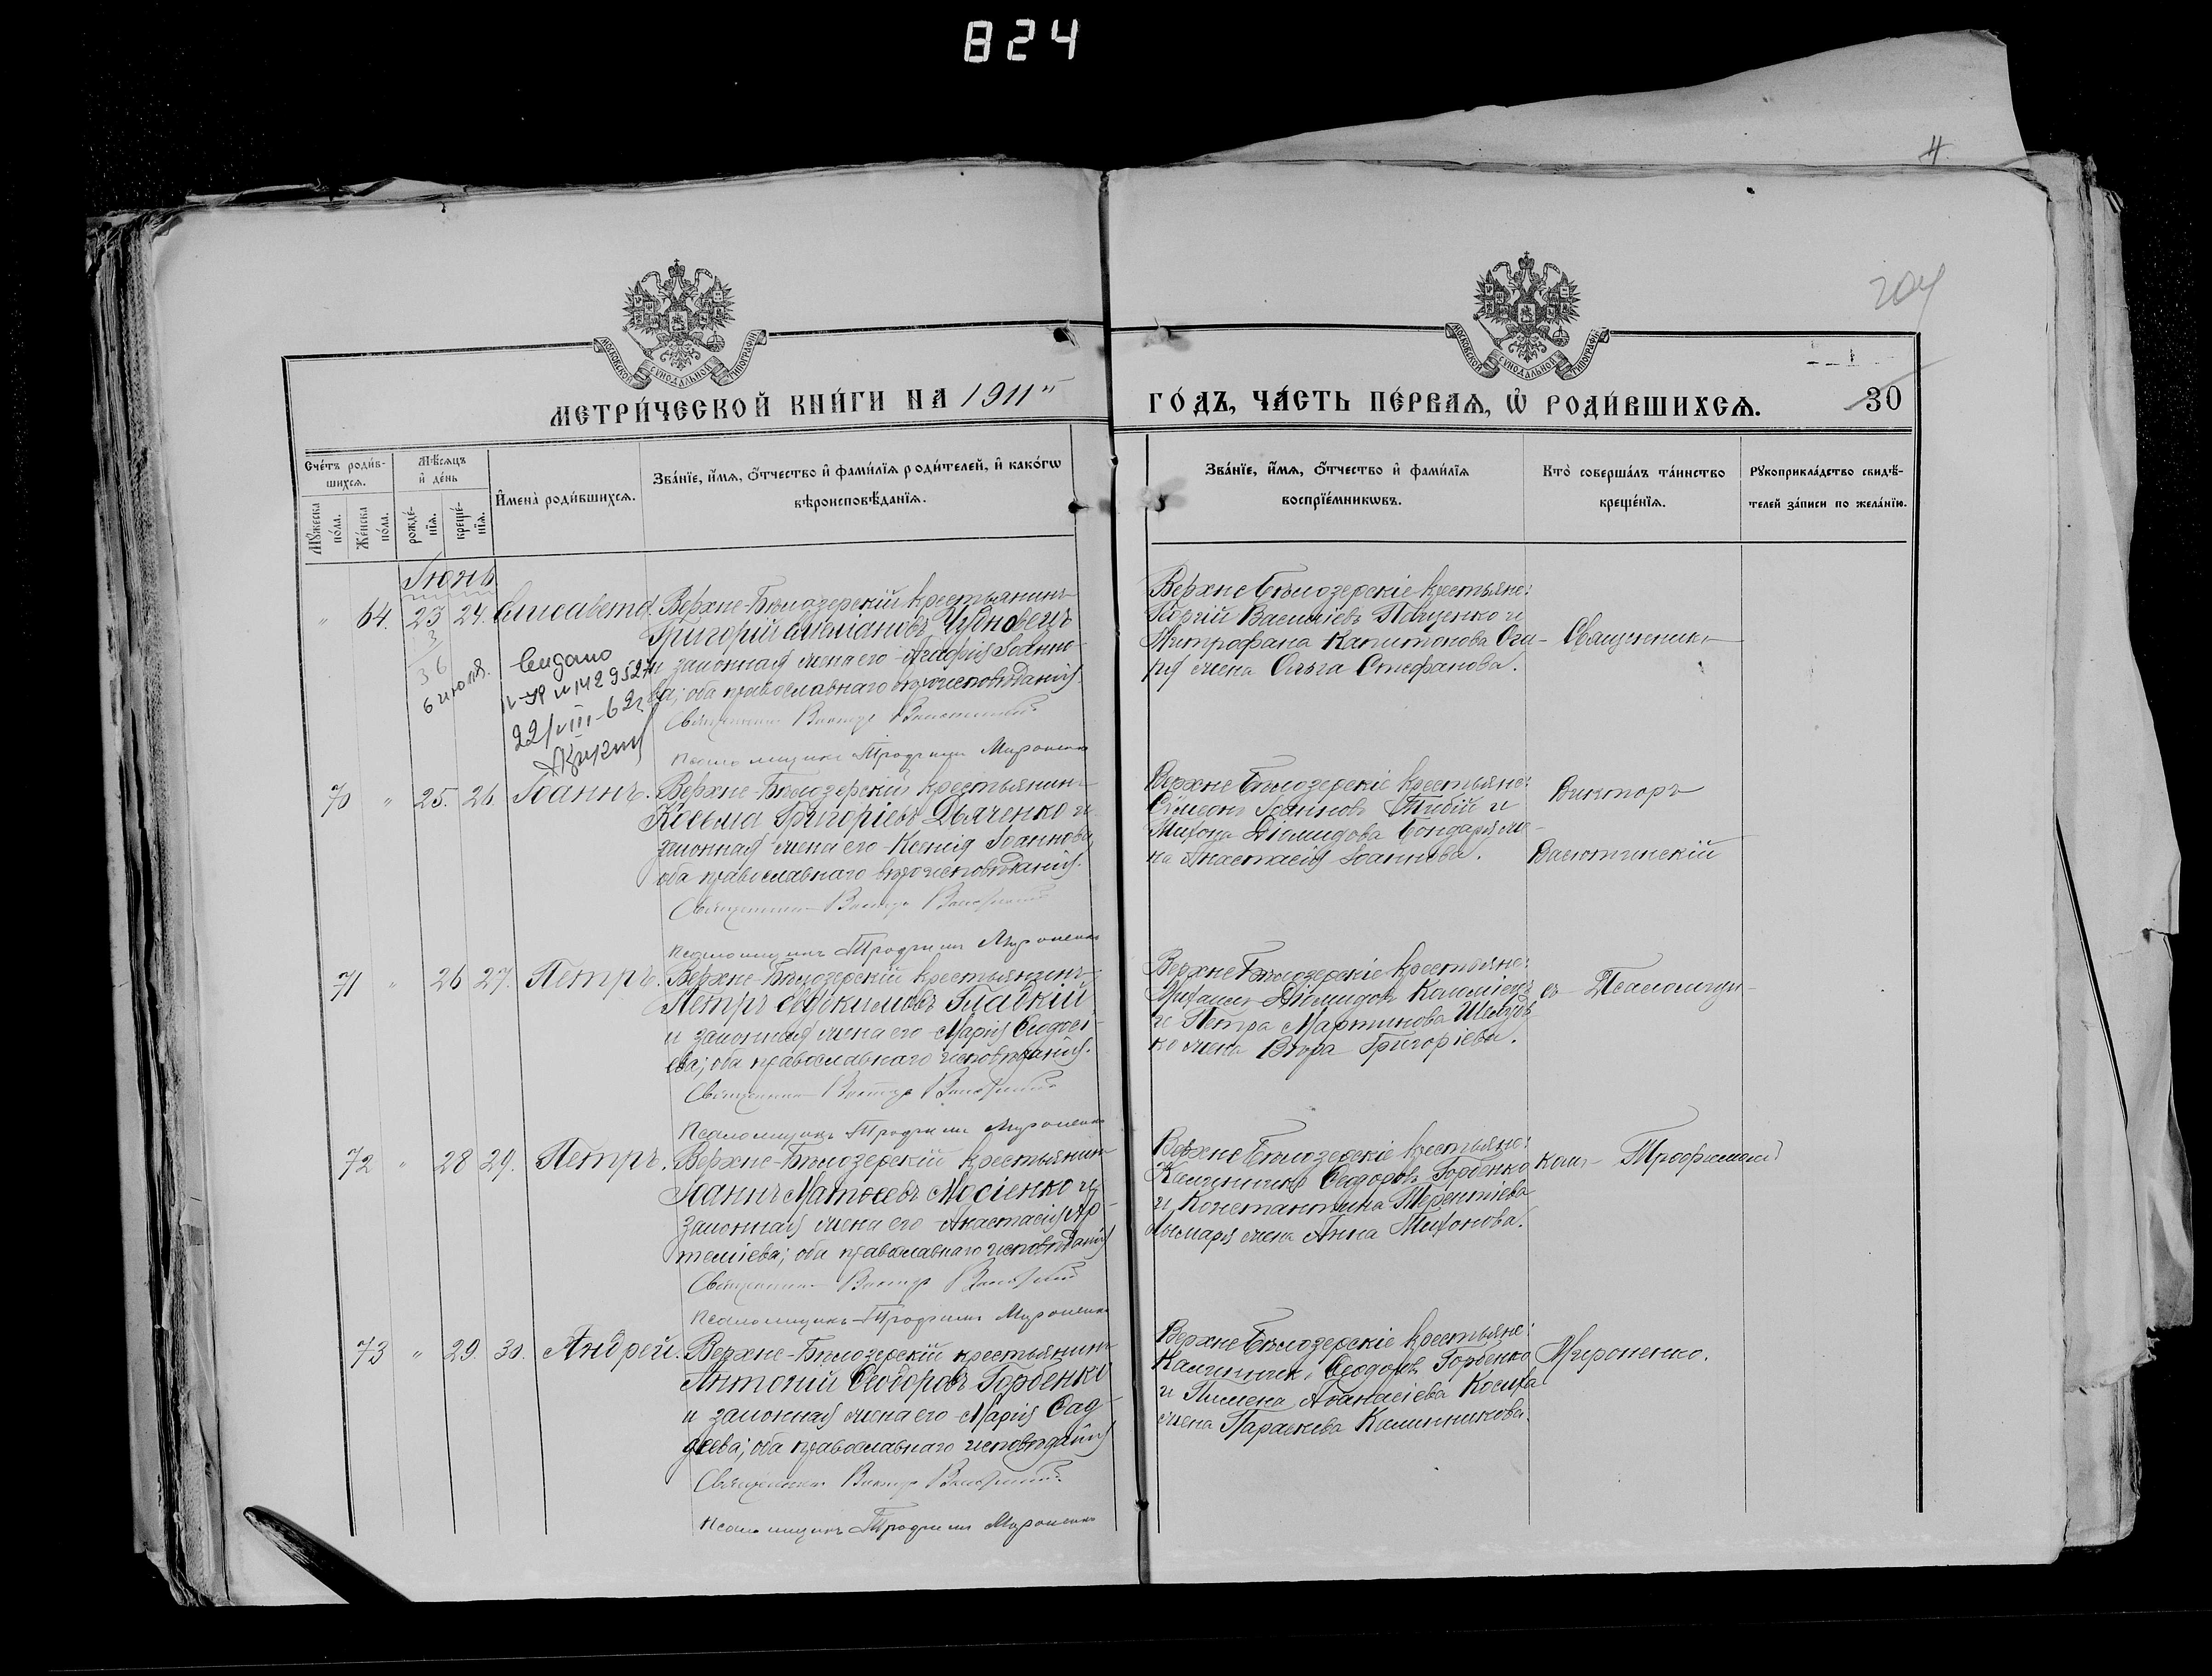 824
4
204
МОСКОВСКОЙ СѴНОДАЛЬНОЙ ТИПОГРАФІИ
МОСКОВСКОЙ СѴНОДАЛЬНОЙ ТИПОГРАФІИ
МЕТРИ́ЧЕСКОЙ КНИ́ГИ НА 1911
ГО́ДЪ, ЧА́СТЬ ПЕ́РВАѦ, Ѡ РОДИ́ВШИХСѦ.
30
Сче́тъ роди́в-
шихсѧ.
Му́жеска
по́ла.
Же́нска
по́ла.
Мѣ́сѧцъ
и҆ де́нь
рожде́-
нїѧ.
креще́-
нїѧ.
И҆мена̀ роди́вшихсѧ.
Зва́нїе, и҆́мѧ, ѻ҆́тчество и҆ фами́лїѧ роди́телей, и҆ како́гѡ
вѣроисповѣ́данїѧ.
Зва́нїе, и҆́мѧ, ѻ҆́тчество и҆ фами́лїѧ
воспрїе́мникѡвъ.
Кто̀ соверша́лъ та́инство
креще́нїѧ.
Рꙋкоприкла́дство свидѣ́-
телей за́писи по жела́нїю.
Іюнь
" 64. 23 24. Елисавета.
Верхне-Бѣлозерскій крестьянинъ
Григорій Емеліановъ Чубновецъ
и законная жена его Агафія Іоанно-
ва; оба православнаго вѣроисповѣданія.
Священникъ Викторъ Васютинскій
Псаломщикъ Трофимъ Мироненко
6 июля.
Выдано
22/VIII-62г
Верхне Бѣлозерскіе крестьяне:
Георгій Василіевъ Пащенко и
Митрофана Капитонова Оги-
ря жена Ольга Стефанова.
Священникъ
70 " 25. 26. Іоаннъ.
Верхне-Бѣлозерскій крестьянинъ
Косьма Григоріевъ Дьяченко и
законная жена его Ксенія Іоаннова,
оба православнаго вѣроисповѣданія.
Священникъ Викторъ Васютинскій
Псаломщикъ Трофимъ Мироненко
Верхне Бѣлозерскіе крестьяне:
Симеонъ Іоанновъ Тибій и
Тихона Діомидова Бондаря же-
на Анастасія Іоаннова.
Викторъ
Васютинскій
71 " 26 27. Петръ.
Верхне-Бѣлозерскій крестьянинъ
Петръ Евдокимовъ Гладкій
и законная жена его Марія Ѳеодосі-
ева; оба православнаго исповѣданія.
Священникъ Викторъ Васютинскій
Псаломщикъ Трофимъ Мироненко
Верхне Бѣлозерскіе крестьяне:
Михаилъ Діомидовъ Коломіецъ
и Петра Мартинова
ко жена Вѣра Григоріева.
съ Псаломщи-
72 " 28 29. Петръ.
Верхне-Бѣлозерскій крестьянинъ
Іоаннъ Матѳеевъ Мосіенко и
законная жена его Анастасія Ар-
теміева; оба православнаго исповѣданія
Священникъ Викторъ Васютинскій
Псаломщикъ Трофимъ Мироненко
Верхне Бѣлозерскіе крестьяне:
Калинникъ Ѳеодоровъ Горбенко
и Константина Терентіева
Лымаря жена Анна Тихонова.
комъ Трофимомъ
73 " 29. 30. Андрей.
Верхне-Бѣлозерскій крестьянинъ
Антоній Ѳеодоровъ Горбенко
и законная жена его Марія Ѳад-
деева; оба православнаго исповѣданія
Священникъ Викторъ Васютинскій
Псаломщикъ Трофимъ Мироненко
Верхне Бѣлозерскіе крестьяне:
Калинникъ Ѳеодоровъ Горбенко
и Пимена Аѳанасіева Косиха
жена Параскева Калинникова.
Мироненко.